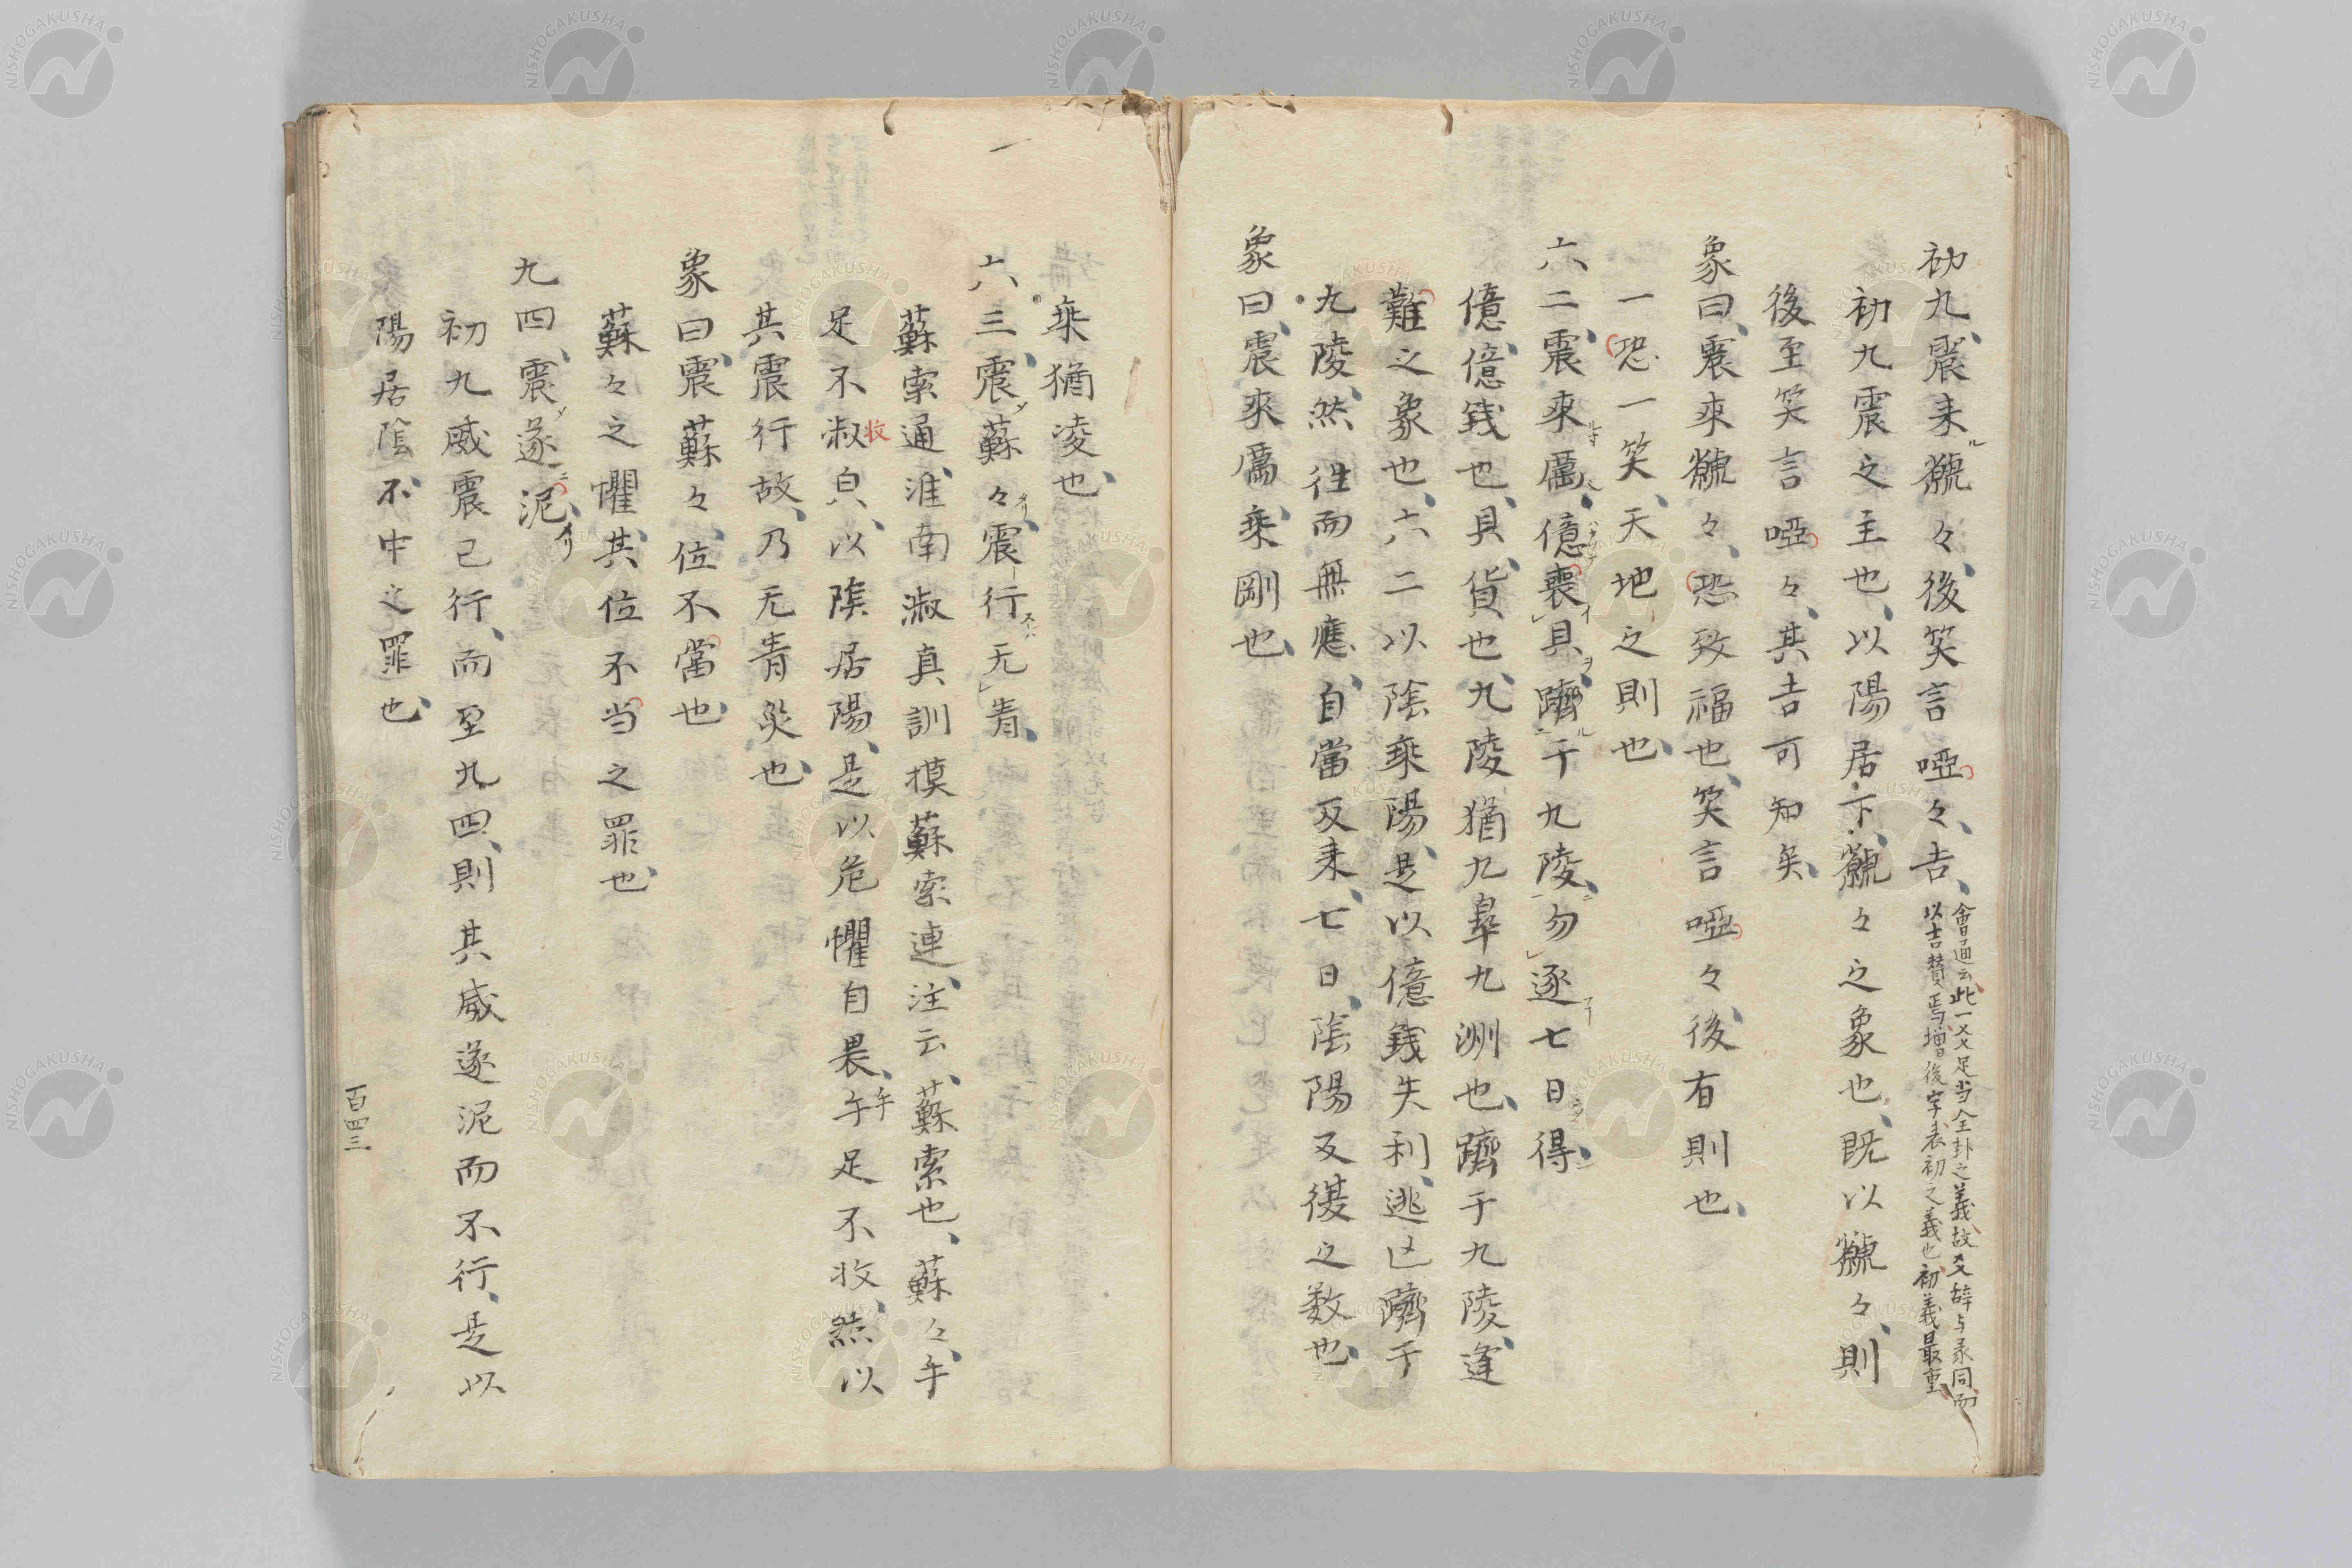 初九、震来虩々、後笑言啞々、吉、
會通云、此一爻足当全卦之義、故爻辞与彖同、而
以吉賛焉、増後字、表初之義也、初義最重、
初九震之主也、以陽居下、虩々之象也、既以虩々、則
後至笑言啞々、其吉可知矣、
象曰、震來虩々、恐致福也、笑言啞々、後有則也、
一恐一笑、天地之則也、
六二震、來厲、億喪貝、躋于九陵、勿逐七日得、
億、億銭也、貝、貨也、九陵猶九皐九渊也、躋于九陵、逢
難之象也、六二以陰乗陽、是以億銭失利、逃亡躋于
九陵、然往而無應、自當反来、七日、陰陽反復之数也、
象曰、震來厲、乗剛也、
乗猶凌也、
六三、震蘇々、震行无眚、
蘇索通、淮南淑真訓摸蘇索連、注云、蘇索也、蘇々、手
足不淑皃、以陰居陽、是以危懼自畏、手足不收、然以
收
手
其震行故、乃无眚災也、
象曰、震蘇々、位不當也、
蘇々之懼、其位不当之罪也、
九四、震遂泥、
初九威震已行、而至九四、則其威遂泥而不行、是以
陽居陰、不中之罪也、
百四三
NISHOGAKUSHA